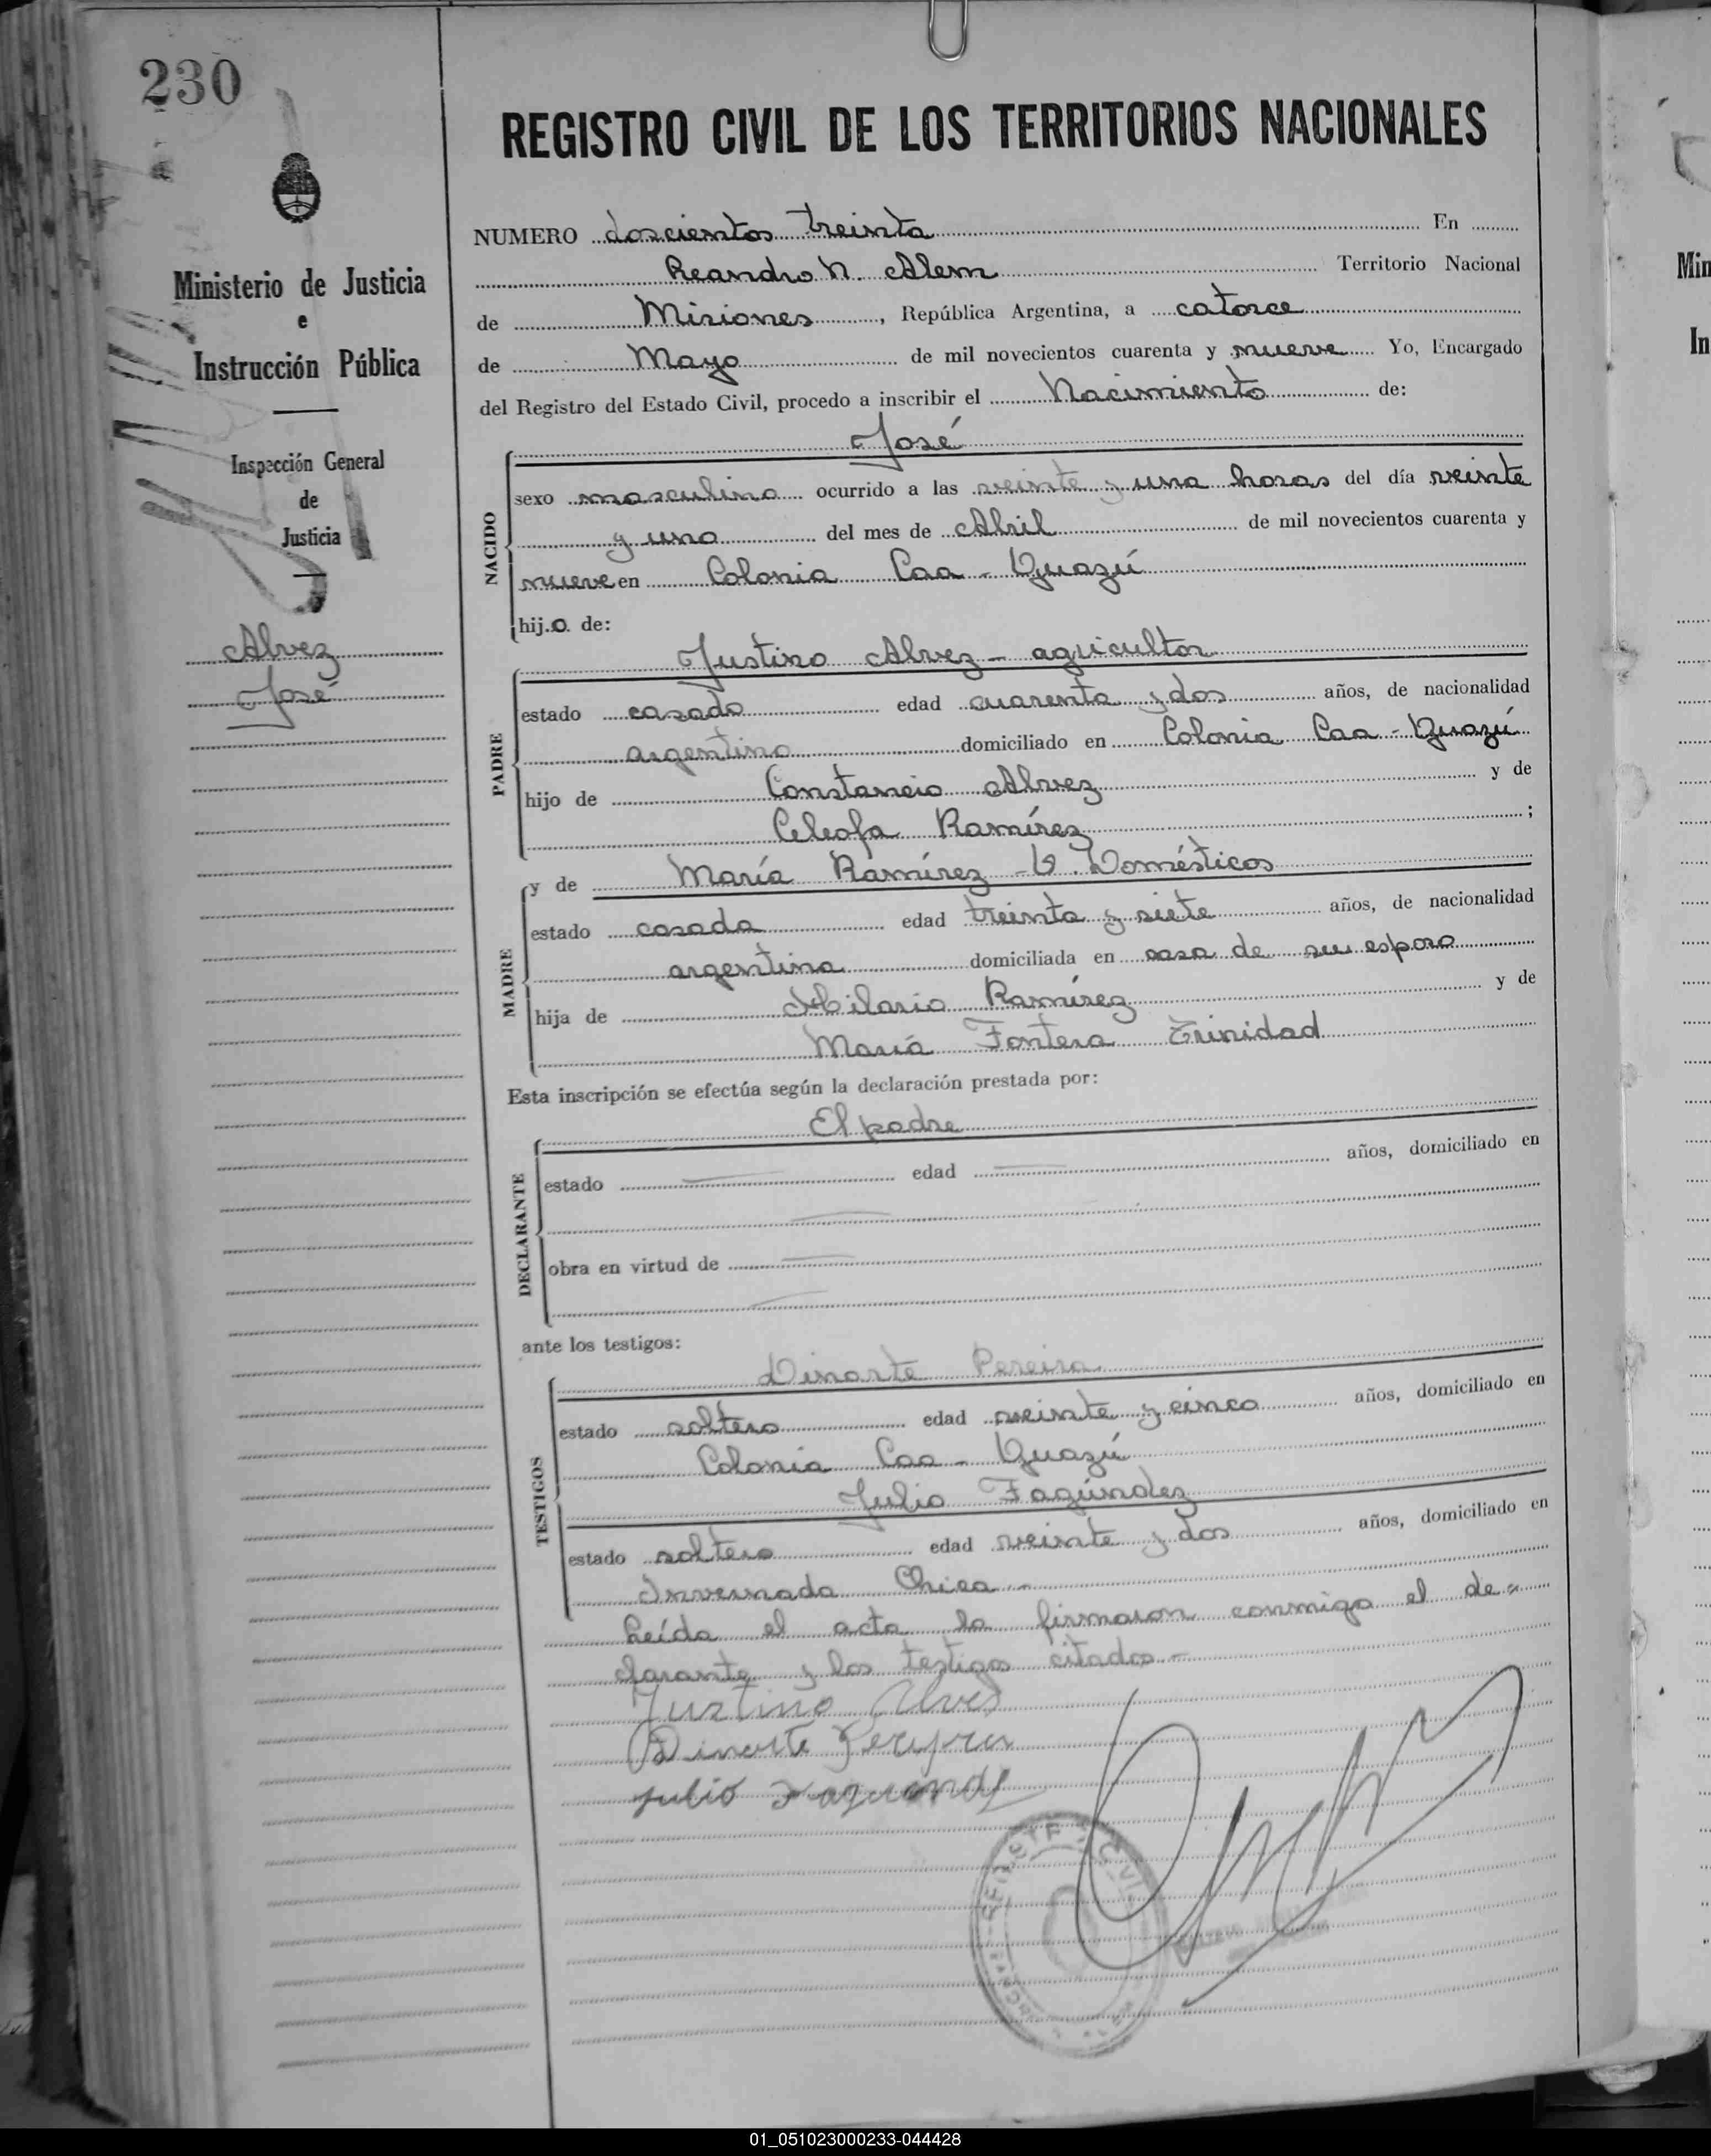 230
REGISTRO CIVIL DE LOS TERRITORIOS NACIONALES
Ministerio de Justicia
e
Instrucción Pública
Inspección General
de
Justicia
Alvez
José
NUMERO doscientos treinta En
Leandro N. Alem Territorio Nacional
de Misiones, República Argentina, a catorce
de Mayo de mil novecientos cuarenta y nueve Yo, Encargado
del Registro del Estado Civil, procedo a inscribir el Nacimiento de:
José
NACIDO
sexo masculino ocurrido a las veinte y una horas del día veinte
y uno del mes de Abril de mil novecientos cuarenta y
nueve en Colonia Caa-Guazú
hijo de:
Justino Alvez - agricultor
PADRE
estado casado edad cuarenta y dos años, de nacionalidad
argentino domiciliado en Colonia Caa-Guazú
hijo de Constancio Alvez y de
Celeofa Ramírez;
y de María Ramírez - Q. Domésticos
MADRE
estado casada edad treinta y siete años, de nacionalidad
argentina domiciliada en casa de su esposo
hija de Hilario Ramírez y de
María Fontera Trinidad
Esta inscripción se efectúa según la declaración prestada por:
El padre
DECLARANTE
estado edad años, domiciliado en
obra en virtud de
ante los testigos:
Dinarte Pereira
TESTIGOS
estado soltero edad veinte y cinco años, domiciliado en
Colonia Caa-Guazú
Julio Fagúndez
estado soltero edad veinte y dos años, domiciliado en
Invernada Chica -
Leída el acta la firmaron conmigo el de=
clarante y los testigos citados -
Justino Alves
Dinarte Pereyra
Julio Fagundez
01_051023000233-044428